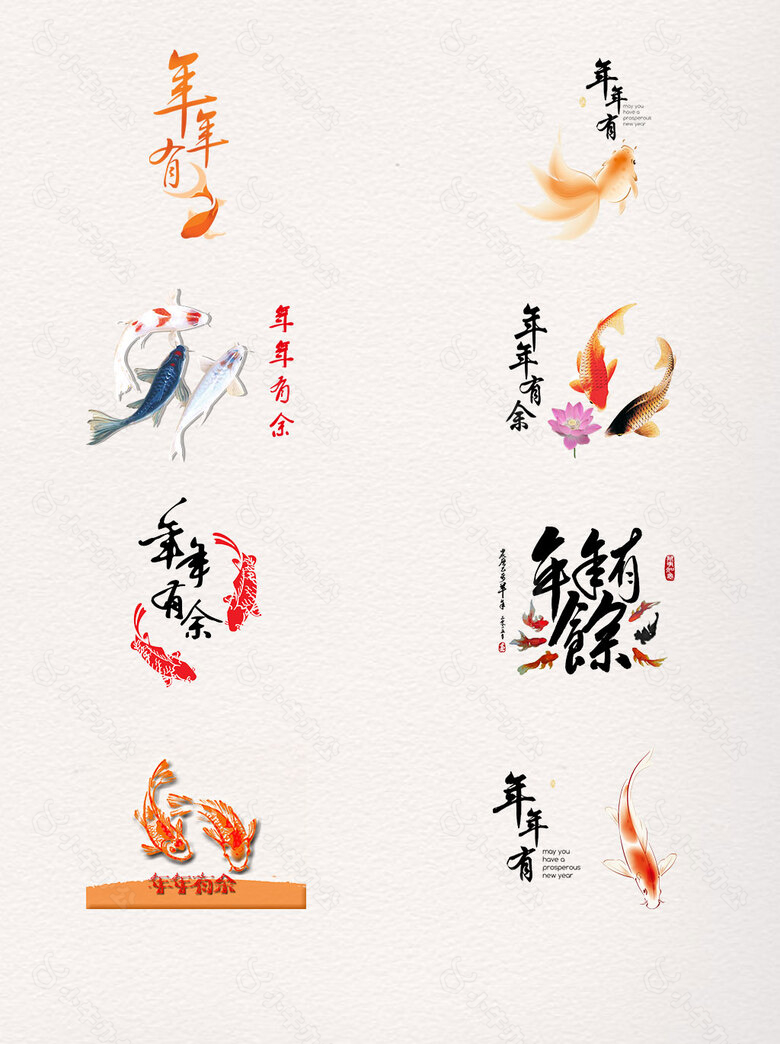 年年有
年年有
may you
have a
prosperous
new year
年年有余
年年有余
年年有余
年年有餘
年年有余
年年有
may you
have a
prosperous
new year